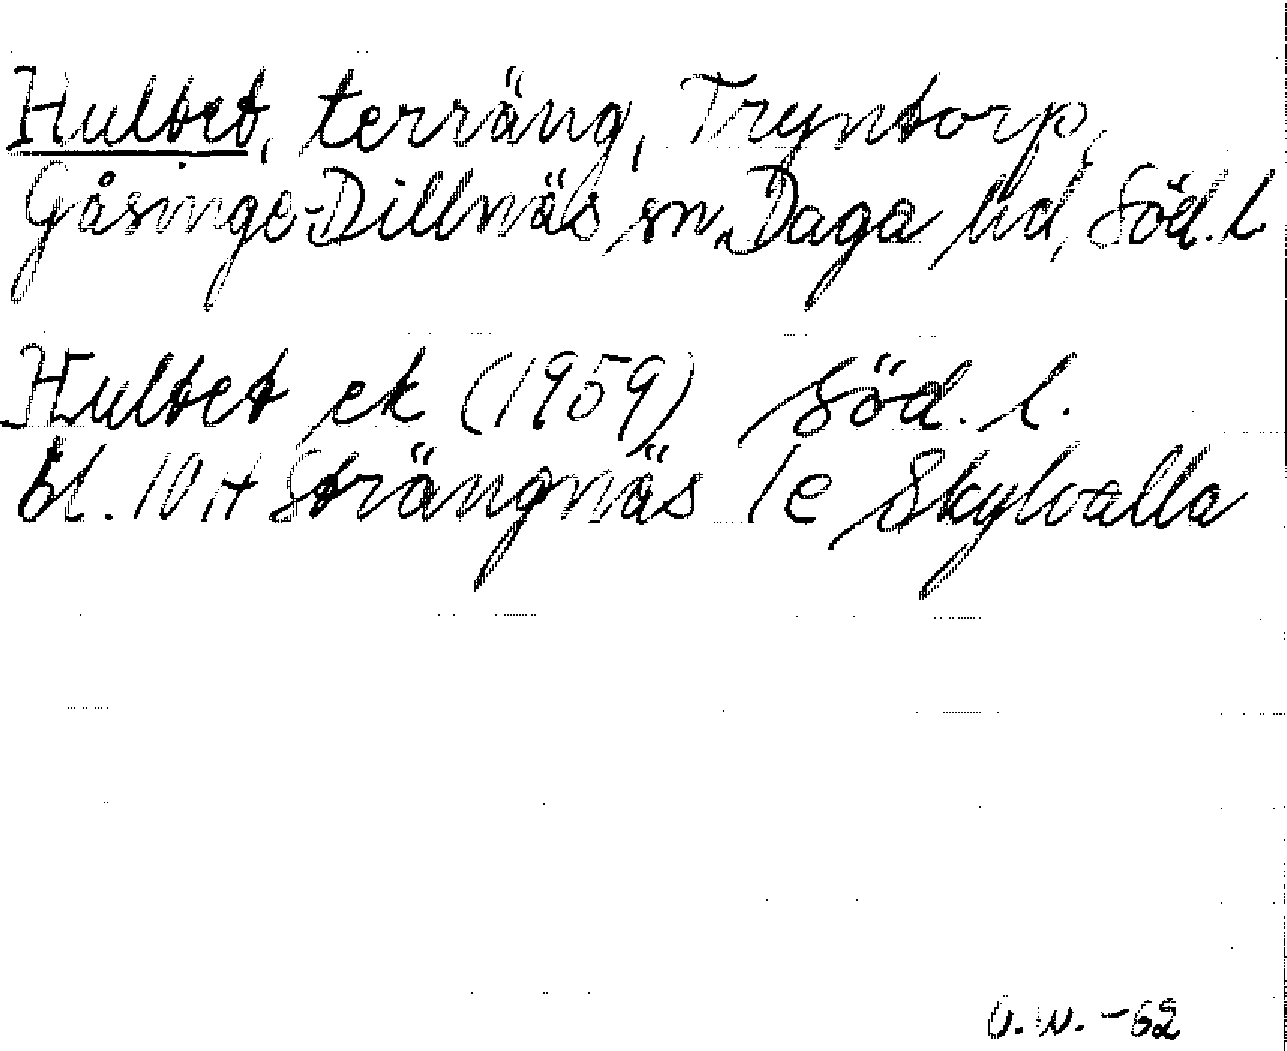 Hultet, terräng, Tryntorp,
Gåsinge-Dillnäs sn, Daga hd, Söd. l
Hultet ek (1959) Söd. l.
bl. 10 H Strängnäs 1e Skylvalla
U.W. -62